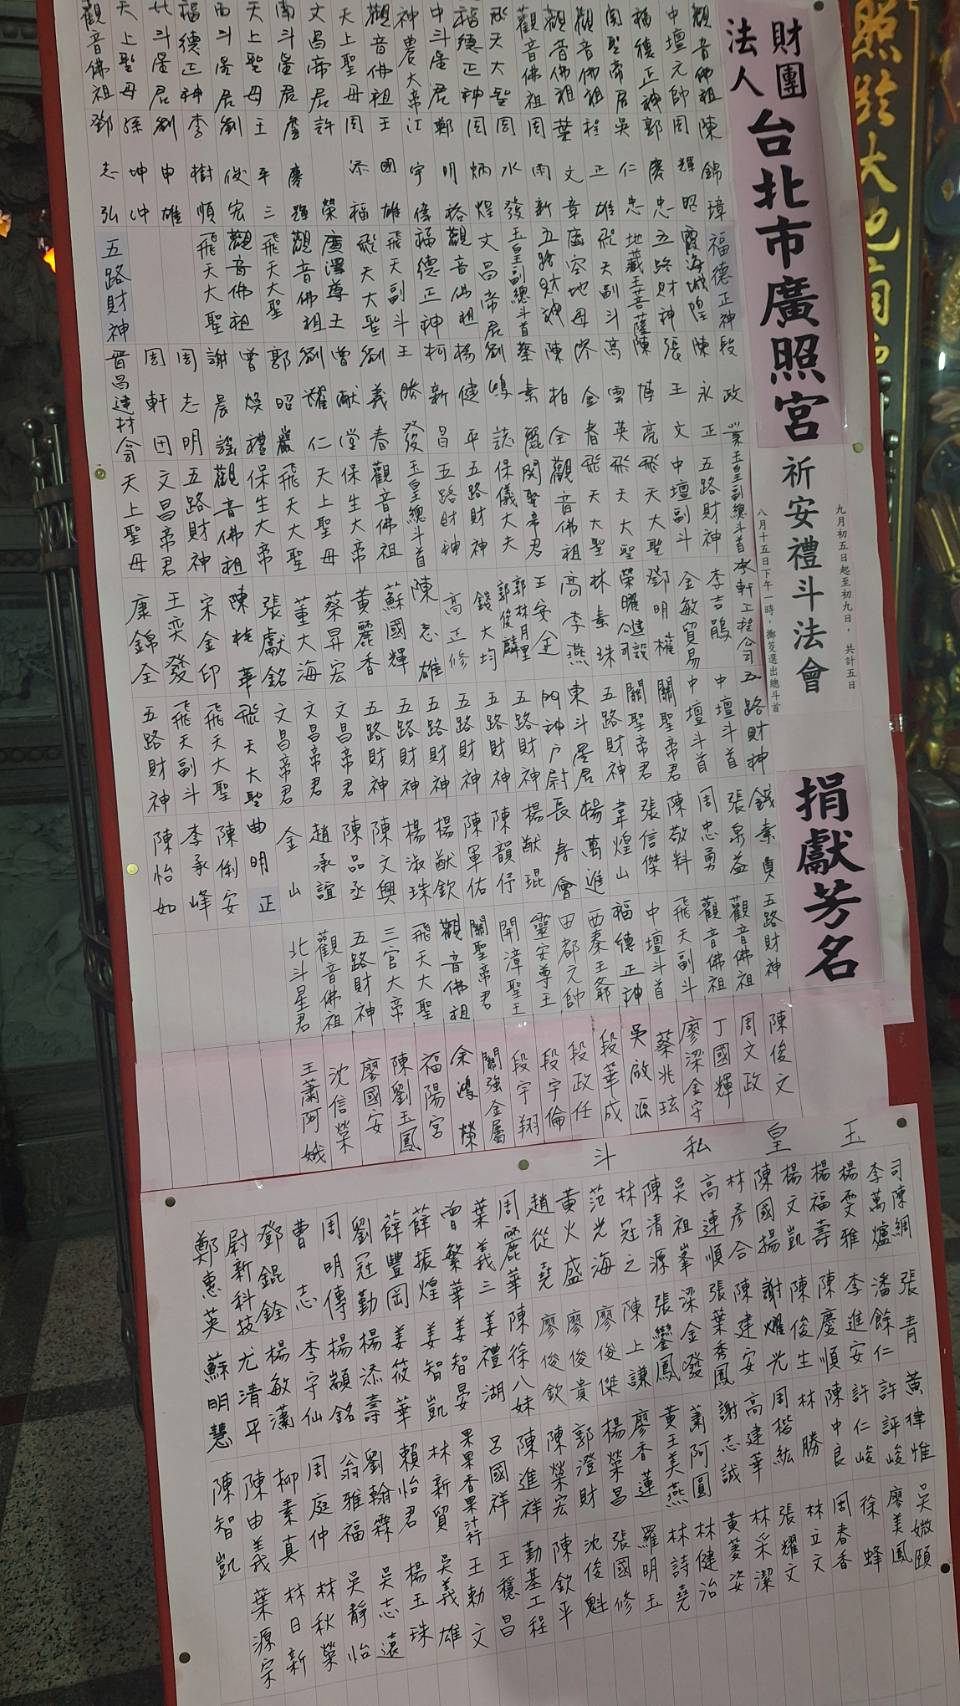 財團
法人
台北市廣照宮
祈安禮斗法會
九月初五日起至初九日，共計五日
八月十五日下午一時，擲筊選出總斗首
捐獻芳名
觀音佛祖 陳錦璋
中壇元帥 周輝昭
福德正神 郭慶忠
關聖帝君 吳仁忠
觀音佛祖 程正雄
觀音佛祖 葉文章
觀音佛祖 周南新
飛天大聖 周水發
福德正神 周炳煌
中斗星君 鄭明裕
神農大帝 江宇偉
觀音佛祖 王國雄
天上聖母 周添福
文昌帝君 許榮
南斗星君 盧慶輝
天上聖母 王平三
西斗星君 劉俊宏
福德正神 李樹順
北斗星君 劉申雄
天上聖母 孫坤沖
觀音佛祖 鄧志弘
福德正神 段政
霞海城隍 陳永正
五路財神 張王文
地藏王菩薩 陳博亮
飛天副斗 高雲英
虛空地母 佟金春
五路財神 陳柏全
玉皇副總斗首 蔡素麗
文昌帝君 劉鳴誌
觀音佛祖 楊健平
福德正神 柯新昌
飛天副斗 王勝發
飛天大聖 劉義春
廣澤尊王 曾猷堂
觀音佛祖 劉耀仁
飛天大聖 郭昭巖
觀音佛祖 曾煥禮
飛天大聖 謝晨謠
周志明
周軒田
五路財神 晉昌建材行
玉皇副總斗首 承軒工程公司
五路財神 李吉鵑
中壇副斗 全敏貿易
飛天大聖 鄧明權
飛天大聖 榮曜建設公司
飛天大聖 林素珠
觀音佛祖 高李燕
關聖帝君 王安全
保儀大夫 郭林月里 郭俊麟
五路財神 錢大均
五路財神 高正修
玉皇總斗首 陳志雄
觀音佛祖 蘇國輝
保生大帝 黃麗香
天上聖母 蔡昇宏
飛天大聖 董大海
保生大帝 張獻銘
觀音佛祖 陳桂華
五路財神 宋金印
文昌帝君 王奕發
天上聖母 康錦全
五路財神 錢素貞
中壇斗首 張泉益
中壇斗首 周忠勇
關聖帝君 陳敬料
關聖帝君 張信傑
五路財神 韋煌山
東斗星君 楊萬進
門神戶尉 長壽會
五路財神 楊猷琨
五路財神 陳韻伃
五路財神 陳軍佑
五路財神 楊猷欽
五路財神 楊淑珠
五路財神 陳文興
文昌帝君 陳品丞
文昌帝君 趙承誼
文昌帝君 金山
飛天大聖 曲明正
飛天大聖 陳俐安
飛天副斗 李承峰
五路財神 陳怡如
五路財神 陳俊文
觀音佛祖 周文政
觀音佛祖 丁國輝
飛天副斗 廖梁金守
中壇斗首 蔡兆玹
福德正神 吳啟源
西秦王爺 段華成
田都元帥 段政任
靈安尊王 段宇倫
開漳聖王 段宇翔
關聖帝君 關強金屬
觀音佛祖 余鴻榮
飛天大聖 福陽宮
三官大帝 陳劉玉鳳
五路財神 廖國安
觀音佛祖 沈信榮
北斗星君 王蕭阿娥
玉皇私斗
司陳綢 張青 黃律惟 吳媺頤
李萬爐 潘餘仁 許評峻 廖美鳳
楊雯雅 李進安 許仁峻 徐蜂
楊福壽 陳慶順 陳中良 周春香
楊文凱 陳俊生 林勝 林立文
陳國揚 謝耀光 周楷紘 張耀文
林彥合 陳建安 高建華 林采潔
高連順 張葉秀鳳 謝志誠 黃菱姿
吳祖峯 梁金發 蕭阿圓 林健治
陳清源 張鑾鳳 黃王美燕 林詩堯
林冠之 陳上謙 廖香蓮 羅明玉
范光海 廖俊傑 楊榮昌 張國修
黃火盛 廖俊貴 郭澄財 沈俊魁
趙從堯 廖俊欽 陳榮宏 陳欽平
周麗華 陳徐八妹 陳進祥 勤基工程
葉義三 姜禮湖 呂國祥 王穩昌
曾繁華 姜智晏 果果香果汁行 王勅文
薛振煌 姜智凱 林新貿 吳義雄
薛豐岡 姜筱華 賴怡君 楊玉珠
劉冠勤 楊添壽 劉翰霖 吳志遠
周明傳 楊顯銘 翁雅福 吳靜怡
曹志 李宇仙 周庭仲 林秋榮
鄧錕銓 楊敏瀟 柳素真 林日新
尉新科技 尤清平 陳由義 葉源宗
鄭惠英 蘇明慧 陳智凱